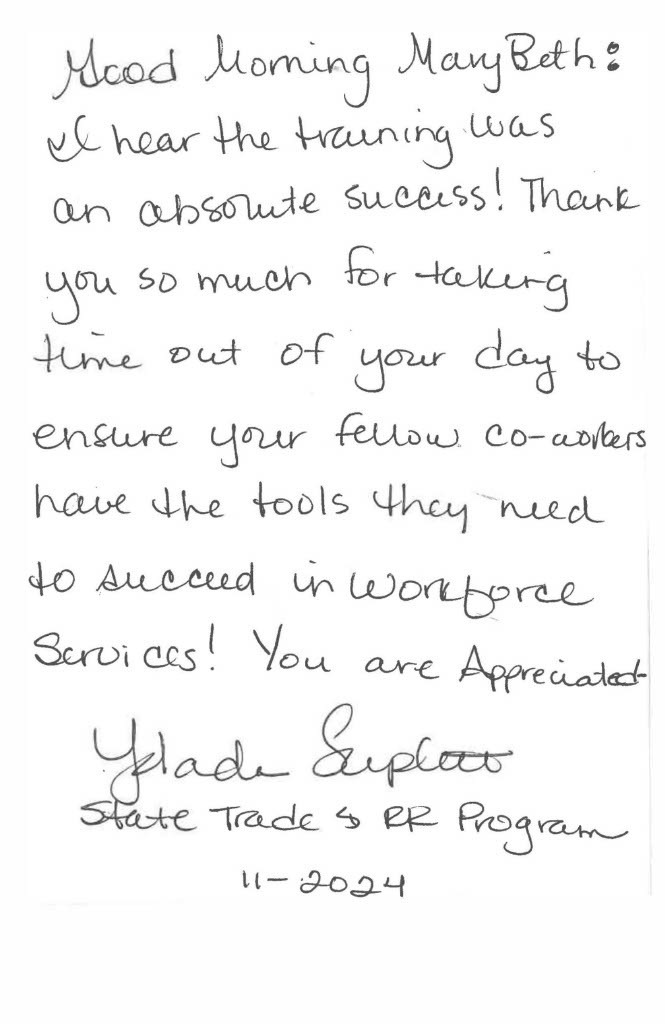 Good Morning MaryBeth:
I hear the training was
an absolute success! Thank
you so much for taking
time out of your day to
ensure your fellow co-workers
have the tools they need
to succeed in Workforce
Services! You are Appreciated
State Trade & RR Program
11-2024